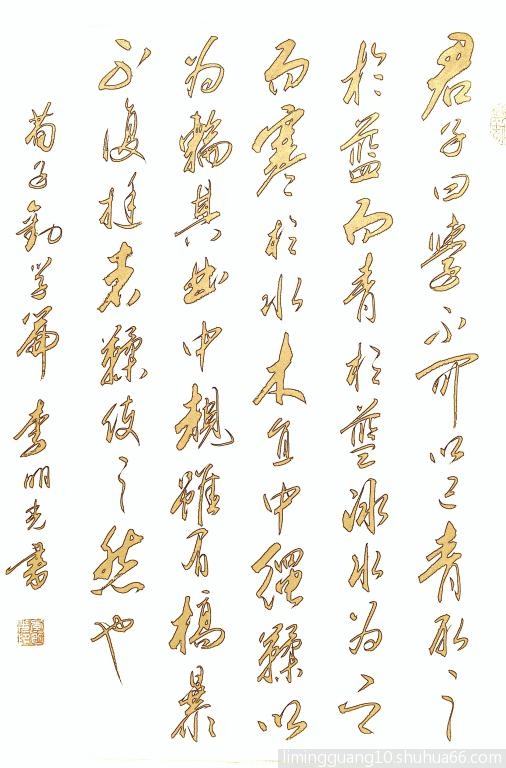 君子曰學不可以已青取之
於藍而青於藍冰水為之
而寒於水木直中繩輮以
為輪其曲中規雖有槁暴
不復挺者輮使之然也
荀子勸学篇 李明光書
limingguang10.shuhua66.com